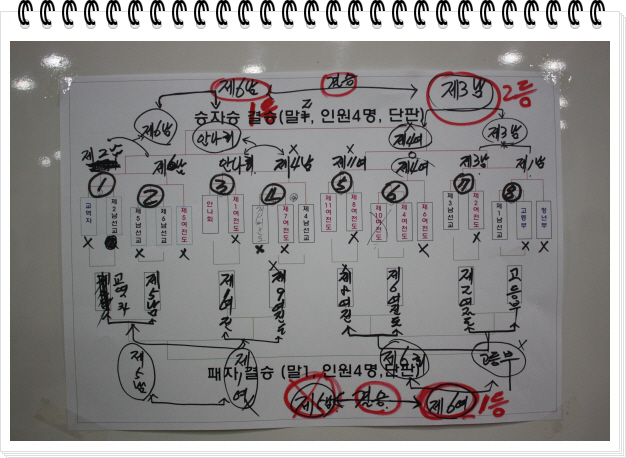 제6남 결승 제3남 2등
1등
승자승 결승(말2, 인원4명, 단판)
제6남 안나회 제4여 제3남
제2남 제6남 안나회 제4남 제11여 제4여 제3남 제1남
① ② ③ ④ ⑤ ⑥ ⑦ ⑧
교역자 제2남선교 제5남선교 제6남선교 제5여전도 안나회 제1여전도 제7여전도 제4남선교 제11여전도 제8여전도 제10여전도 제4여전도 제6여전도 제3남선교 제2여전도 제1남선교 고등부 청년부
교역자 제5남 제1여전 제8여전 제6여전도 제2여전도 고등부
제5남 제1여 제6여 고등부
패자 결승 (말1, 인원4명,단판)
제5남 결승 제6여 1등